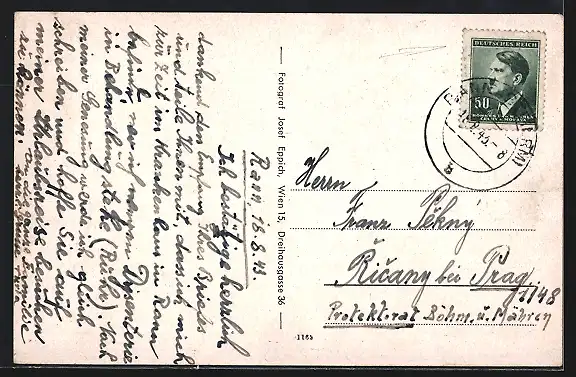 Rann, 16.8.43.
Ich bestätige herzlich
dankend den Empfang Ihres Briefes
und teile Ihnen mit, dass ich mich
zur Zeit im Krankenhaus in Rann
befinde, wo ich wegen Dysenterie
in Behandlung stehe (Ruhr). Nach
meiner Genesung werde ich gleich
schreiben und hoffe Sie auf
meiner Urlaubsreise besuchen
zu können.
Fotograf Josef Eppich, Wien 15, Dreihausgasse 36
1165
DEUTSCHES REICH
50
BÖHMEN UND MÄHREN
ČECHY A MORAVA
Herrn
Franz Pěkný
Řičany bei Prag
1148
Protektorat Böhm. u. Mähren